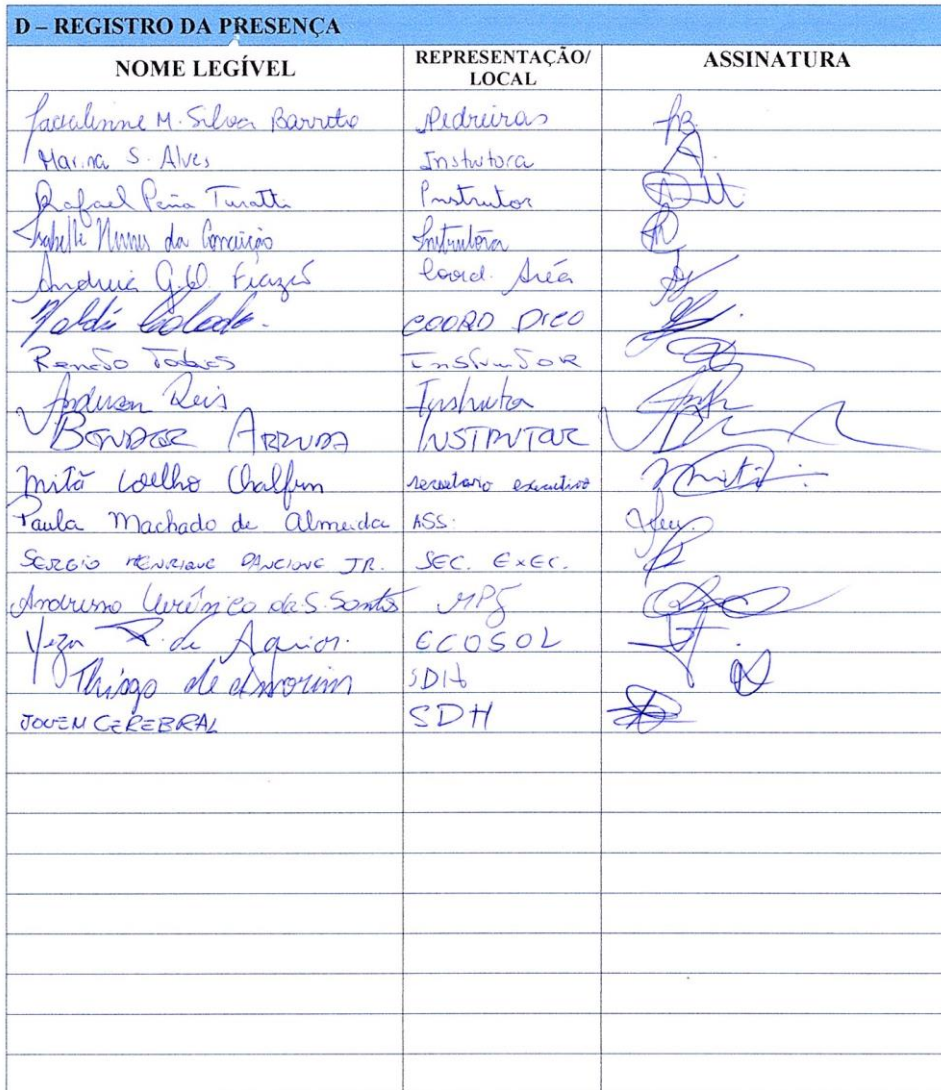 D – REGISTRO DA PRESENÇA
NOME LEGÍVEL REPRESENTAÇÃO/ LOCAL ASSINATURA
M. Silva Barreto Pedreiras
Marina S. Alves Instrutora
Rafael Peña Turatti Instrutor
Isabelle Nunes da Conceição Instrutora
Andreia G. Coord. Área
COORD DICO
Renato Tobias Instrutor
Anderson Reis Instrutor
ARRUDA INSTRUTOR
Mitã Coelho Chalfun secretario executivo Mitã
Paula Machado de Almeida ASS:
SERGIO HENRIQUE PANCIONE JR. SEC. EXEC.
da S. Santos
de Aguiar. ECOSOL
Thiago de Amorim SDH
JOVEM CEREBRAL SDH